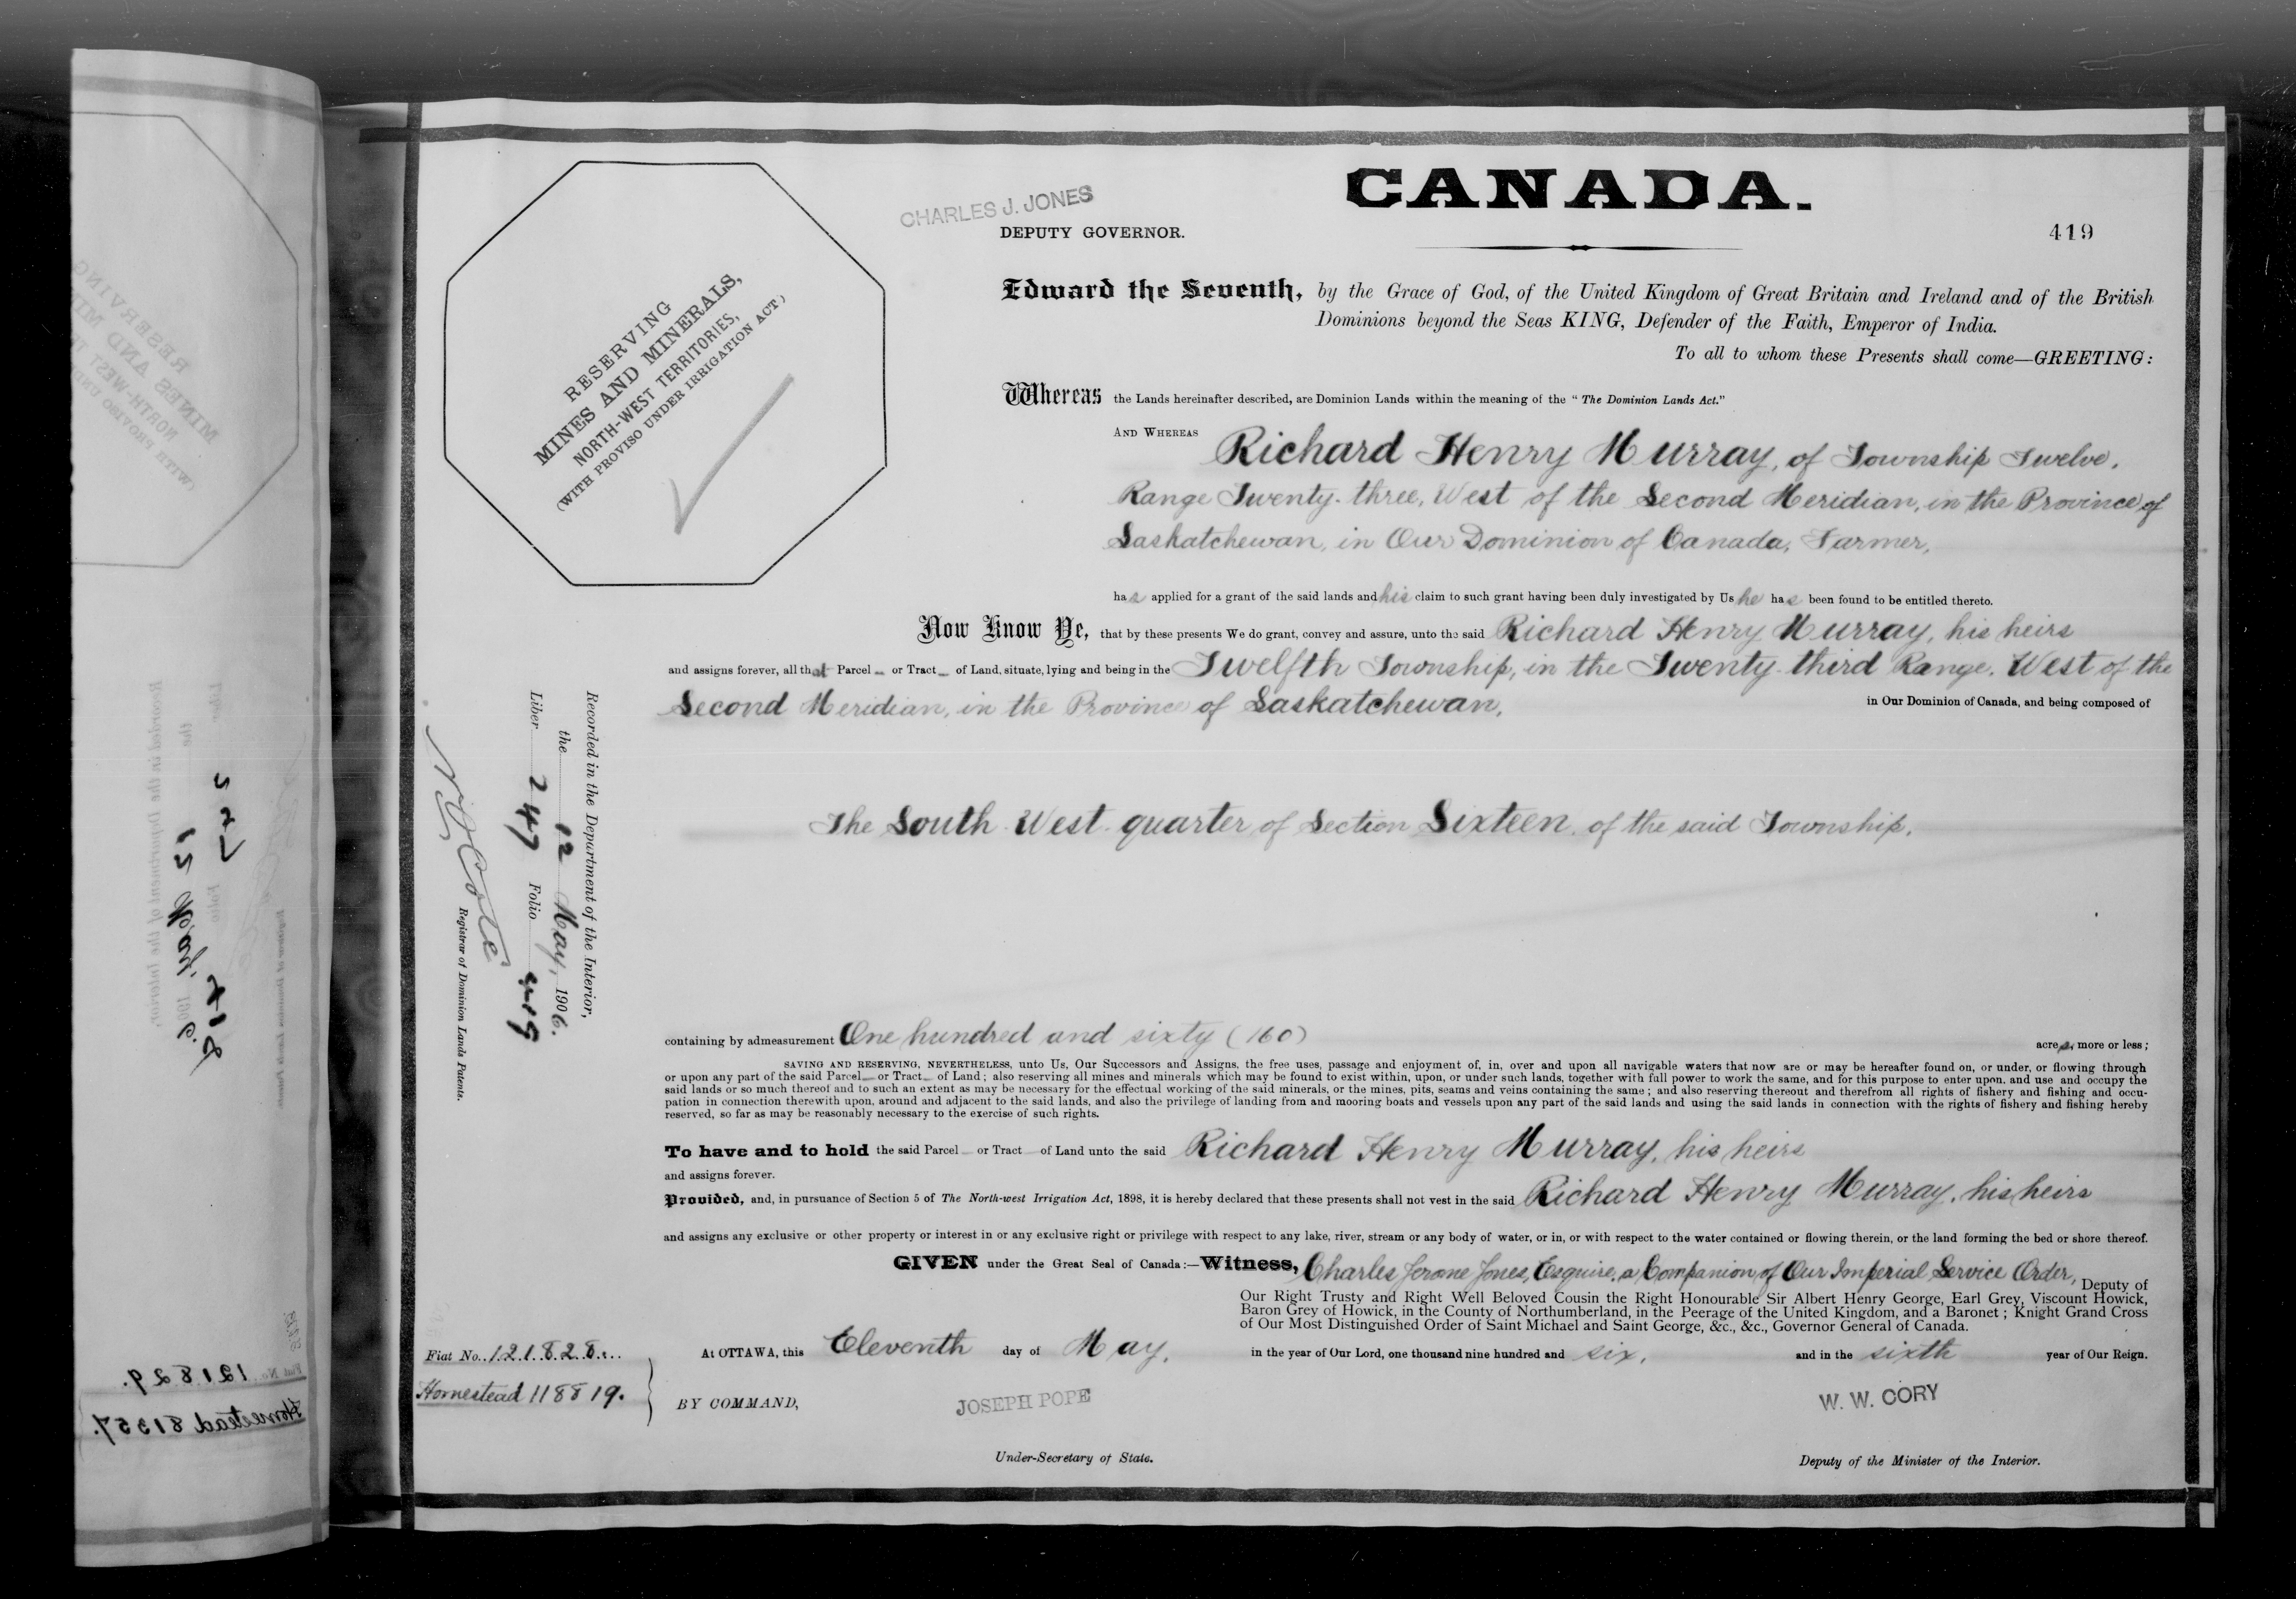 CANADA.
CHARLES J. JONES
DEPUTY GOVERNOR.
419
RESERVING
MINES AND MINERALS,
NORTH-WEST TERRITORIES,
(WITH PROVISO UNDER IRRIGATION ACT.)
Edward the Seventh, by the Grace of God, of the United Kingdom of Great Britain and Ireland and of the British
Dominions beyond the Seas KING, Defender of the Faith, Emperor of India.
To all to whom these Presents shall come—GREETING:
Whereas the Lands hereinafter described, are Dominion Lands within the meaning of the "The Dominion Lands Act."
AND WHEREAS Richard Henry Murray, of Township Twelve,
Range Twenty-three, West of the Second Meridian, in the Province of
Saskatchewan, in Our Dominion of Canada, Farmer,
has applied for a grant of the said lands and his claim to such grant having been duly investigated by Us he has been found to be entitled thereto.
Now Know Ye, that by these presents We do grant, convey and assure, unto the said Richard Henry Murray, his heirs
and assigns forever, all that Parcel or Tract of Land, situate, lying and being in the Twelfth Township, in the Twenty-third Range, West of the
Second Meridian, in the Province of Saskatchewan, in Our Dominion of Canada, and being composed of
The South West quarter of Section Sixteen of the said Township,
Recorded in the Department of the Interior,
the 12 May, 1906.
Liber 247 Folio 419
Cote
Registrar of Dominion Lands Patents.
containing by admeasurement One hundred and sixty (160) acres, more or less;
SAVING AND RESERVING, NEVERTHELESS, unto Us, Our Successors and Assigns, the free uses, passage and enjoyment of, in, over and upon all navigable waters that now are or may be hereafter found on, or under, or flowing through
or upon any part of the said Parcel or Tract of Land; also reserving all mines and minerals which may be found to exist within, upon, or under such lands, together with full power to work the same, and for this purpose to enter upon, and use and occupy the
said lands or so much thereof and to such an extent as may be necessary for the effectual working of the said minerals, or the mines, pits, seams and veins containing the same; and also reserving thereout and therefrom all rights of fishery and fishing and occu-
pation in connection therewith upon, around and adjacent to the said lands, and also the privilege of landing from and mooring boats and vessels upon any part of the said lands and using the said lands in connection with the rights of fishery and fishing hereby
reserved, so far as may be reasonably necessary to the exercise of such rights.
To have and to hold the said Parcel or Tract of Land unto the said Richard Henry Murray, his heirs
and assigns forever.
Provided, and, in pursuance of Section 5 of The North-west Irrigation Act, 1898, it is hereby declared that these presents shall not vest in the said Richard Henry Murray, his heirs
and assigns any exclusive or other property or interest in or any exclusive right or privilege with respect to any lake, river, stream or any body of water, or in, or with respect to the water contained or flowing therein, or the land forming the bed or shore thereof.
GIVEN under the Great Seal of Canada:—Witness, Charles Jerome Jones, Esquire, a Companion of Our Imperial Service Order, Deputy of
Our Right Trusty and Right Well Beloved Cousin the Right Honourable Sir Albert Henry George, Earl Grey, Viscount Howick,
Baron Grey of Howick, in the County of Northumberland, in the Peerage of the United Kingdom, and a Baronet; Knight Grand Cross
of Our Most Distinguished Order of Saint Michael and Saint George, &c., &c., Governor General of Canada.
Fiat No. 121828.
Homestead 118819.
At OTTAWA, this Eleventh day of May, in the year of Our Lord, one thousand nine hundred and six, and in the sixth year of Our Reign.
BY COMMAND,
JOSEPH POPE
W. W. CORY
Under-Secretary of State.
Deputy of the Minister of the Interior.